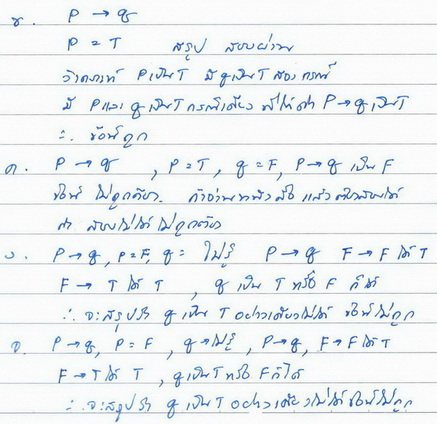 ข. P → q
P = T สรุป สอบผ่าน
วิเคราะห์ P เป็น T มี q เป็น T สองกรณี
มี P และ q เป็น T กรณีเดียว ที่ให้ค่า P → q เป็น T
∴ ข้อนี้ถูก
ค. P → q , P = T , q = F, P → q เป็น F
ข้อนี้ ไม่ถูกต้อง. ถ้าอ่านหนังสือ แล้วต้องสอบได้
ถ้า สอบไม่ได้ ไม่ถูกต้อง
ง. P → q , P = F, q = ไม่รู้ P → q F → F ได้ T
F → T ได้ T , q เป็น T หรือ F ก็ได้
∴ จะสรุปว่า q เป็น T อย่างเดียวไม่ได้ ข้อนี้ไม่ถูก
จ. P → q, P = F , q → ไม่รู้ , P → q, F → F ได้ T
F → T ได้ T , q เป็น T หรือ F ก็ได้
∴ จะสรุปว่า q เป็น T อย่างเดียวไม่ได้ ข้อนี้ไม่ถูก